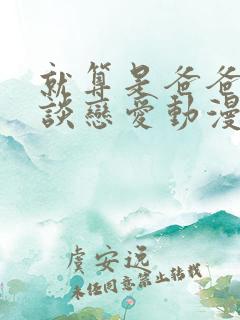 就算是爸爸
談戀愛動漫
虞安远
未经同意禁止转载